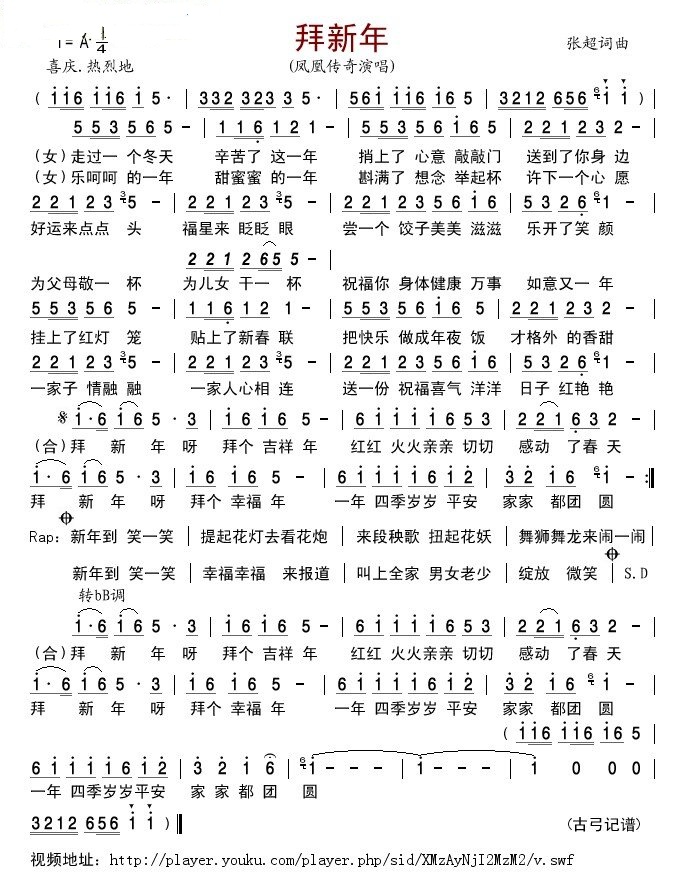 拜新年
1=A 1/4
张超词曲
喜庆.热烈地
(凤凰传奇演唱)
( i i 6 i i 6 i 5 · | 3 3 2 3 2 3 5 · | 5 6 i i i 6 i 6 5 | 3 2 1 2 6 5 6 i i | )
5 5 3 5 6 5 - | 1 1 6 1 2 1 - | 5 5 3 5 5 6 i 6 5 | 5 5 3 2 3 2 -
(女)走过一 个冬天 辛苦了 这一年 捎上了 心意 敲敲门 送到了你身 边
(女)乐呵呵 的一年 甜蜜蜜 的一年 斟满了 想念 举起杯 许下一个心 愿
2 2 1 2 3 5 - | 2 2 1 2 3 5 - | 2 2 1 2 3 5 6 i 6 | 5 5 3 2 6 1 - |
好运来点点 头 福星来 眨眨 眼 尝一个 饺子美美 滋滋 乐开了笑 颜
2 2 1 2 6 5 5 - |
为父母敬一 杯 为儿女 干一 杯 祝福你 身体健康 万事 如意又一 年
5 5 3 5 6 5 - | 1 1 6 1 2 1 - | 5 5 3 5 5 6 i 6 5 | 2 2 1 2 3 2 - |
挂上了红灯 笼 贴上了新春 联 把快乐 做成年夜 饭 才格外 的香甜
2 2 1 2 3 5 - | 2 2 1 2 3 5 - | 2 2 1 2 3 5 6 i 6 | 5 5 3 2 6 1 - |
一家子 情融 融 一家人心相 连 送一份 祝福喜气 洋洋 日子 红艳 艳
i · 6 i 6 5 · 3 | i 6 i 6 5 - | 6 i i i i 6 5 3 | 2 2 1 6 3 2 - |
(合)拜 新 年 呀 拜个 吉祥 年 红红 火火亲亲 切切 感动 了春 天
i · 6 i 6 5 · 3 | i 6 i 6 5 - | 6 i i i i 6 i 2 | 3 2 i 6 i - :||
拜 新 年 呀 拜个 幸福 年 一年 四季岁岁 平安 家家 都团 圆
Rap: 新年到 笑一笑 | 提起花灯去看花炮 | 来段秧歌 扭起花妖 | 舞狮舞龙来闹一闹 |
新年到 笑一笑 | 幸福幸福 来报道 | 叫上全家 男女老少 | 绽放 微笑 | S.D
转bB调
i · 6 i 6 5 · 3 | i 6 i 6 5 - | 6 i i i i 6 5 3 | 2 2 1 6 3 2 - |
(合)拜 新 年 呀 拜个 吉祥 年 红红 火火亲亲 切切 感动 了春 天
i · 6 i 6 5 · 3 | i 6 i 6 5 - | 6 i i i i 6 i 2 | 3 2 i 6 i - |
拜 新 年 呀 拜个 幸福 年 一年 四季岁岁 平安 家家 都团 圆
( i i 6 i i 6 i 6 5 |
6 i i i i 6 i 2 | 3 2 i 6 | i - - - | i - - - | 1 0 0 0
一年 四季岁岁平安 家 家 都 团 圆
3 2 1 2 6 5 6 i i ||
(古弓记谱)
视频地址: http://player.youku.com/player.php/sid/XMzAyNjI2MzM2/v.swf